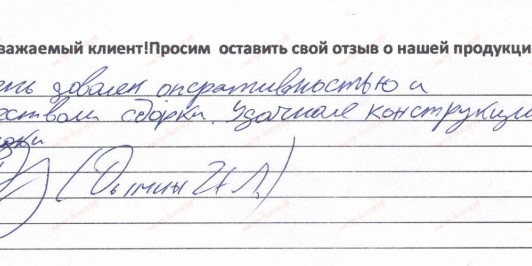 важаемый клиент!Просим оставить свой отзыв о нашей продукци
ень доволен оперативностью и
еством сборки. Удачная конструкция